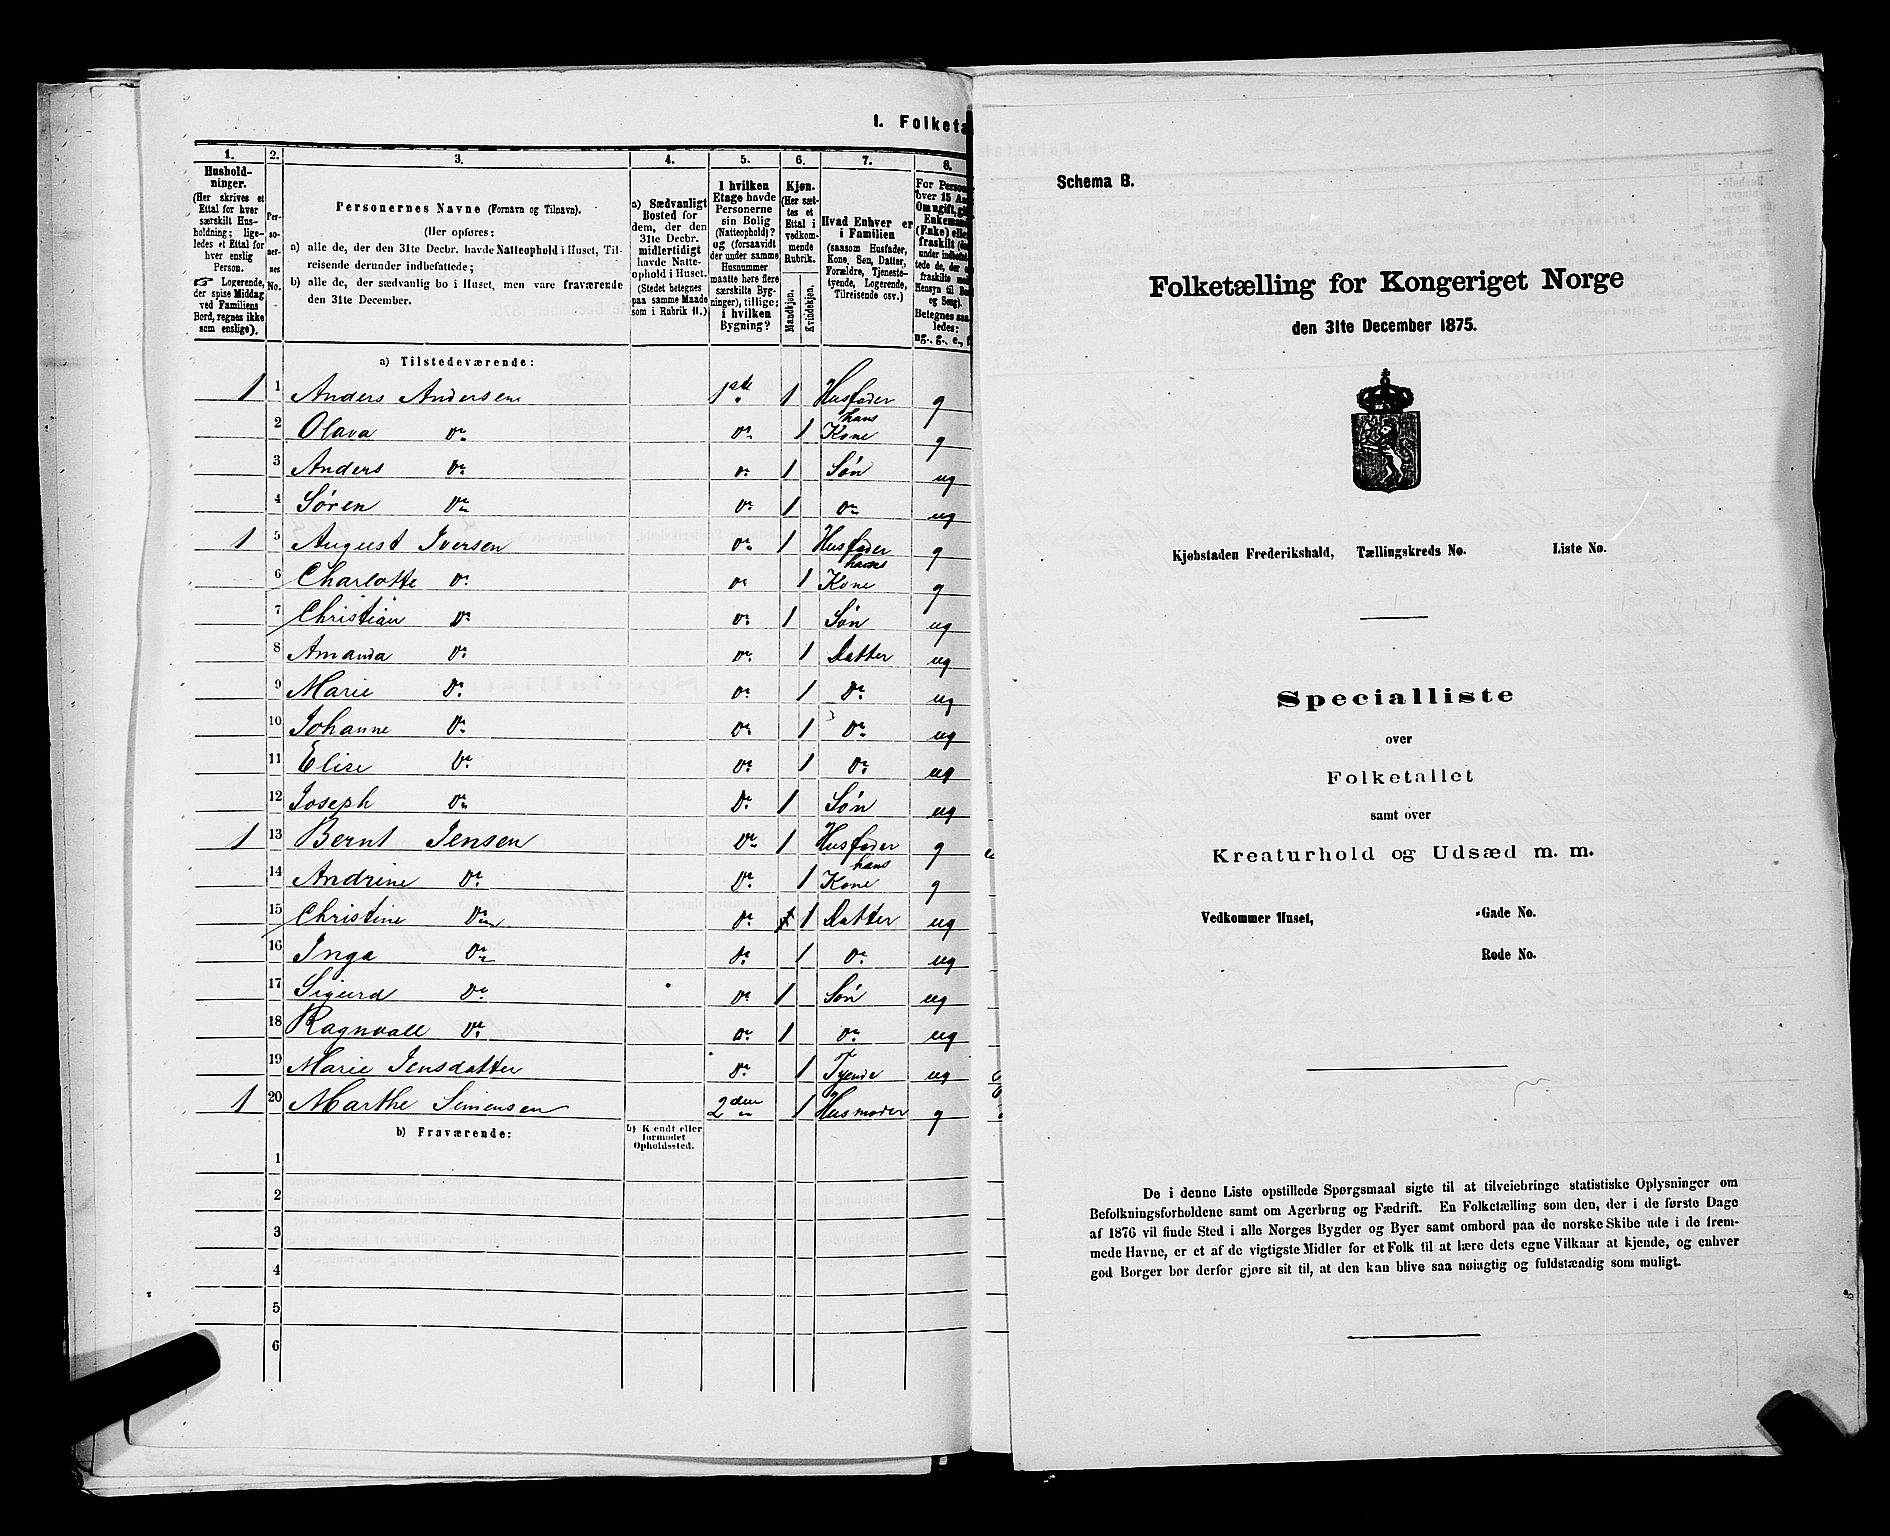 I. Folketa
1. 2. 3. 4. 5. 6. 7. 8.
Hushold-
ninger.
(Her skrives et
Ettal for hver
særskilt Hus-
holdning; lige-
ledes et Ettal for
hver enslig
Person.
☞ Logerende,
der spise Middag
ved Familiens
Bord, regnes ikke
som enslige).
Per-
so-
ner-
nes
No.
Personernes Navne (Fornavn og Tilnavn).
(Her opføres:
a) alle de, der den 31te Decbr. havde Natteophold i Huset, Til-
reisende derunder indbefattede;
b) alle de, der sædvanlig bo i Huset, men vare fraværende
den 31te December.
a) Sædvanligt
Bosted for
dem, der den
31te Decbr.
midlertidigt
havde Natte-
ophold i Huset.
(Stedet betegnes
paa samme Maade
som i Rubrik 11.)
I hvilken
Etage havde
Personerne
sin Bolig
(Natteophold)?
og (forsaavidt
der under samme
Husnummer
maatte høre flere
særskilte Byg-
ninger), tillige:
i hvilken
Bygning?
Kjøn.
(Her sæt-
tes et
Ettal i
vedkom-
mende
Rubrik.
Mandkjøn.
Kvindekjøn.
Hvad Enhver er
i Familien
(saasom Husfader,
Kone, Søn, Datter,
Forældre, Tjeneste-
tyende, Logerende,
Tilreisende osv.)
For Person
over 15 Aa
Om ugift, gi
Enkemand
(Enke) elle
fraskilt (
tede de, der
fraskilte
Hensyn til
og Seng).
Betegnes saa
ledes:
ug., g., e., f.
a) Tilstedeværende:
1 1 Anders Andersen 1ste 1 Husfader g
2 Olava Do do 1 hans Kone g
3 Anders Do do 1 Søn ug
4 Søren Do do 1 do ug
1 5 August Iversen do 1 Husfader g
6 Charlotte Do do 1 hans Kone g
7 Christian Do do 1 Søn ug
8 Amanda Do do 1 Datter ug
9 Marie Do do 1 Do ug
10 Johanne Do do 1 Do ug
11 Elise Do do 1 Do ug
12 Joseph Do Do 1 Søn ug
1 13 Bernt Jensen Do 1 Husfader g
14 Andrine Do Do 1 hans Kone g
15 Christine Do do 1 Datter ug
16 Inga Do do 1 Do ug
17 Sigurd Do do 1 Søn ug
18 Ragnvall Do do 1 do ug
19 Marie Jensdatter Do 1 Tyende ug
1 20 Marthe Simensen 2den 1 Husmoder g
b) Fraværende:
b) Kjendt eller
formodet
Opholdssted.
1
2
3
4
5
6
Schema B.
Folketælling for Kongeriget Norge
den 31te December 1875.
Kjøbstaden Frederikshald, Tællingskreds No. Liste No.
Specialliste
over
Folketallet
samt over
Kreaturhold og Udsæd m. m.
Vedkommer Huset, -Gade No.
Rode No.
De i denne Liste opstillede Spørgsmaal sigte til at tilveiebringe statistiske Oplysninger om
Befolkningsforholdene samt om Agerbrug og Fædrift. En Folketælling som den, der i de første Dage
af 1876 vil finde Sted i alle Norges Bygder og Byer samt ombord paa de norske Skibe ude i de frem-
mede Havne, er et af de vigtigste Midler for et Folk til at lære dets egne Vilkaar at kjende, og enhver
god Borger bør derfor gjøre sit til, at den kan blive saa nøiagtig og fuldstændig som muligt.